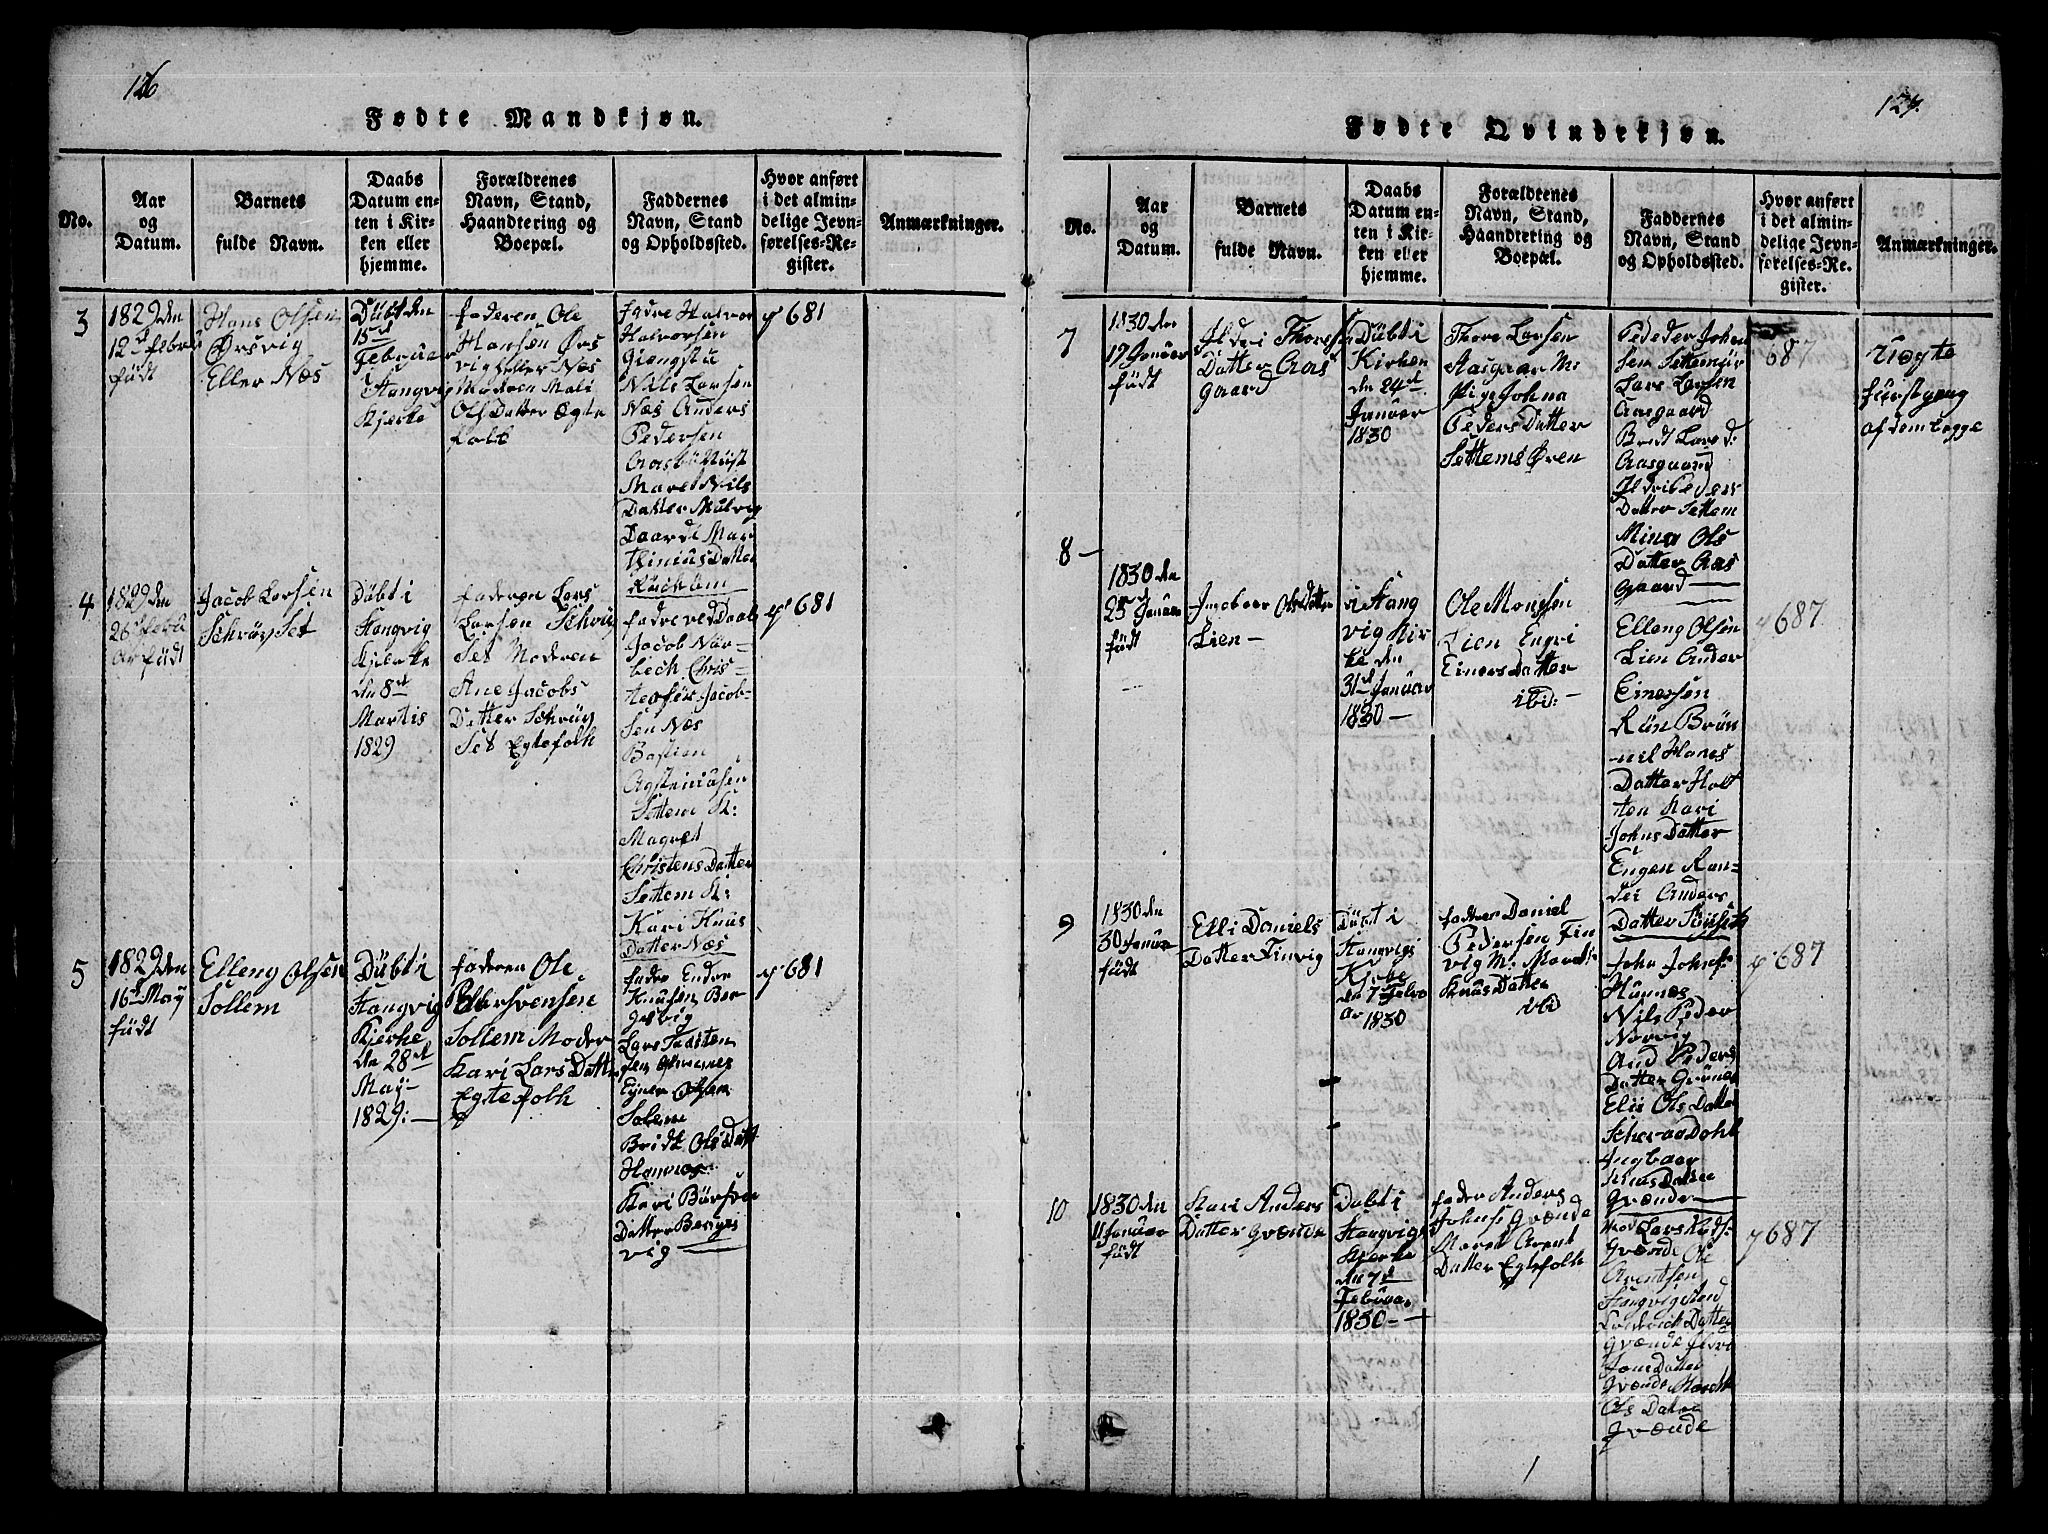 126
Fødte Mandkjøn.
No.
Aar
og
Datum.
Barnets
fulde Navn.
Daabs
Datum en-
ten i Kir-
ken eller
hjemme.
Forældrenes
Navn, Stand,
Haandtering og
Boepæl.
Faddernes
Navn, Stand
og Opholdssted.
Hvor anført
i det almin-
delige Jevn-
førelses-Re-
gister.
Anmærkninger.
3
1829 den
12 Febru
födt
Hans Olsen
Ørsvig
Eller Næs
Dübt den
15d
Februar
i Stangvig
Kjerke
faderen Ole
Hansen Ørs
vig eller Næs
Moderen Mali
Ols Datter Egte
folk
fadre Halvor
Halvorsen
Giengstu
Nils Larsen
Næs Anders
Pedersen
Maret Nils
Datter Mulvig
Daarde Mar
thinius Datter
p 681
4
1829 den
28 Febu
ar födt
Jacob Larsen
Schröj Set
Dübt i
Stangvig
Kjerke
den 8d
Martis
1829
faderen Lars
Larsen Schröj
Set Moderen
Ane Jacobs
Datter Schröj
Set Egtefolk
fadre ved Daab
Jacob Nær-
bech Chris-
tofer Jacob-
sen Næs
Bastian
Settem St:
Magret
Christens Datter
Settem St:
Kari Knus
Datter Næs
p 681
5
1829 den
16 May
födt
Elleng Olsen
Sollem
Dübt i
Stangvig
Kjerke
den 28d
May-
1829:—
faderen Ole
Sollem Moder
Kari Lars Datter
Egtefolk
fadre Ender
Knusen Ber
gesvig
Lars
Ejner Olsen
Solem
Bridt Ols Datt
Hamnes
Kari
Datter Berges
vig
p 681
127.
Fødte Qvindekjøn.
No.
Aar
og
Datum.
Barnets
fulde Navn.
Daabs
Datum en-
ten i Kir-
ken eller
hjemme.
Forældrenes
Navn, Stand,
Haandtering og
Boepæl.
Faddernes
Navn, Stand
og Opholdssted.
Hvor anført
i det almin-
delige Jevn-
førelses-Re-
gister.
Anmærkninger.
7
1830 den
17 Januar
födt
Ildri Thores
Datter Aas
gaard
Dübt i
Kirken
den 24d
Januar
1830
Thore Larsen
Aasgaar M:
Pige Johna
Peders Datter
Settems Øren
Peder John
sen Settem
Lars Larsen
Aasgaard
Bret Lars d:
Aasgaard
Ildri Peders
Datter Settem
Datter Aas
gaard
687
Uægte
første gang
af dem begge
8
1830 den
25 Januar
födt
Ingebor Ols Datter
Lien
i Stang
vig Kir
ke den
31d Januar
1830
Ole Monssen
Lien Engri
Einers Datter
ibid:
Elleng Olsen
Lien Ander
Einersen
Hanes
Datter Holt
ten Kari
Johns Datter
Engen Ran-
dei Anders
Datter
p 687
9
1830 den
30 Januar
födt
Elli Daniels
Datter Finvig
Dübt i
Stangvigs
Kjerke
den 7d Febru
ar 1830
fader Daniel
Pedersen Fin
vig M: Maret
Knus Datter
ibid
John Johns
Nils Peder
And Peders
Datter
Ols Datter
Ingbaar
Knus Datter
Qvænde
p 687
10
1830 den
11 Januar
födt
Kari Anders
Datter Qvænde
Dabt i
Stangvigs
Kjerke
den 7d
Februa.
1830
fader Anders
Johns Qvænde
Maret Arent
Datter Egtefolk
Lars
Qvænde Ole
Arentsen
Stangvig
Datter
Qvænde
Jons Datter
Qvænde
Ols Datter
Qvænde
p 687